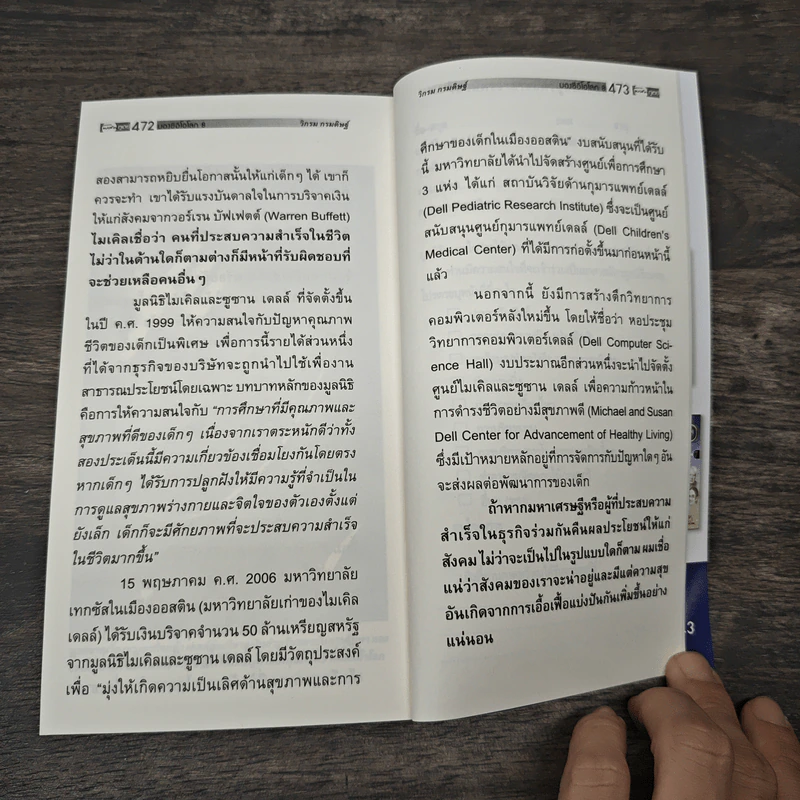 472 มองซีอีโอโลก 8 วิกรม กรมดิษฐ์
สองสามารถหยิบยื่นโอกาสนั้นให้แก่เด็กๆ ได้ เขาก็
ควรจะทำ เขาได้รับแรงบันดาลใจในการบริจาคเงิน
ให้แก่สังคมจากวอร์เรน บัฟเฟตต์ (Warren Buffett)
ไมเคิลเชื่อว่า คนที่ประสบความสำเร็จในชีวิต
ไม่ว่าในด้านใดก็ตามต่างก็มีหน้าที่รับผิดชอบที่
จะช่วยเหลือคนอื่นๆ
มูลนิธิไมเคิลและซูซาน เดลล์ ที่จัดตั้งขึ้น
ในปี ค.ศ. 1999 ให้ความสนใจกับปัญหาคุณภาพ
ชีวิตของเด็กเป็นพิเศษ เพื่อการนี้รายได้ส่วนหนึ่ง
ที่ได้จากธุรกิจของบริษัทจะถูกนำไปใช้เพื่องาน
สาธารณประโยชน์โดยเฉพาะ บทบาทหลักของมูลนิธิ
คือการให้ความสนใจกับ “การศึกษาที่มีคุณภาพและ
สุขภาพที่ดีของเด็กๆ เนื่องจากเราตระหนักดีว่าทั้ง
สองประเด็นนี้มีความเกี่ยวข้องเชื่อมโยงกันโดยตรง
หากเด็กๆ ได้รับการปลูกฝังให้มีความรู้ที่จำเป็นใน
การดูแลสุขภาพร่างกายและจิตใจของตัวเองตั้งแต่
ยังเล็ก เด็กก็จะมีศักยภาพที่จะประสบความสำเร็จ
ในชีวิตมากขึ้น”
15 พฤษภาคม ค.ศ. 2006 มหาวิทยาลัย
เทกซัสในเมืองออสติน (มหาวิทยาลัยเก่าของไมเคิล
เดลล์) ได้รับเงินบริจาคจำนวน 50 ล้านเหรียญสหรัฐ
จากมูลนิธิไมเคิลและซูซาน เดลล์ โดยมีวัตถุประสงค์
เพื่อ “มุ่งให้เกิดความเป็นเลิศด้านสุขภาพและการ
วิกรม กรมดิษฐ์ มองซีอีโอโลก 8 473
ศึกษาของเด็กในเมืองออสติน” งบสนับสนุนที่ได้รับ
นี้ มหาวิทยาลัยได้นำไปจัดสร้างศูนย์เพื่อการศึกษา
3 แห่ง ได้แก่ สถาบันวิจัยด้านกุมารแพทย์เดลล์
(Dell Pediatric Research Institute) ซึ่งจะเป็นศูนย์
สนับสนุนศูนย์กุมารแพทย์เดลล์ (Dell Children's
Medical Center) ที่ได้มีการก่อตั้งขึ้นมาก่อนหน้านี้
แล้ว
นอกจากนี้ ยังมีการสร้างตึกวิทยาการ
คอมพิวเตอร์หลังใหม่ขึ้น โดยให้ชื่อว่า หอประชุม
วิทยาการคอมพิวเตอร์เดลล์ (Dell Computer Sci-
ence Hall) งบประมาณอีกส่วนหนึ่งจะนำไปจัดตั้ง
ศูนย์ไมเคิลและซูซาน เดลล์ เพื่อความก้าวหน้าใน
การดำรงชีวิตอย่างมีสุขภาพดี (Michael and Susan
Dell Center for Advancement of Healthy Living)
ซึ่งมีเป้าหมายหลักอยู่ที่การจัดการกับปัญหาใดๆ อัน
จะส่งผลต่อพัฒนาการของเด็ก
ถ้าหากมหาเศรษฐีหรือผู้ที่ประสบความ
สำเร็จในธุรกิจร่วมกันคืนผลประโยชน์ให้แก่
สังคม ไม่ว่าจะเป็นไปในรูปแบบใดก็ตาม ผมเชื่อ
แน่ว่าสังคมของเราจะน่าอยู่และมีแต่ความสุข
อันเกิดจากการเอื้อเฟื้อแบ่งปันกันเพิ่มขึ้นอย่าง
แน่นอน
3